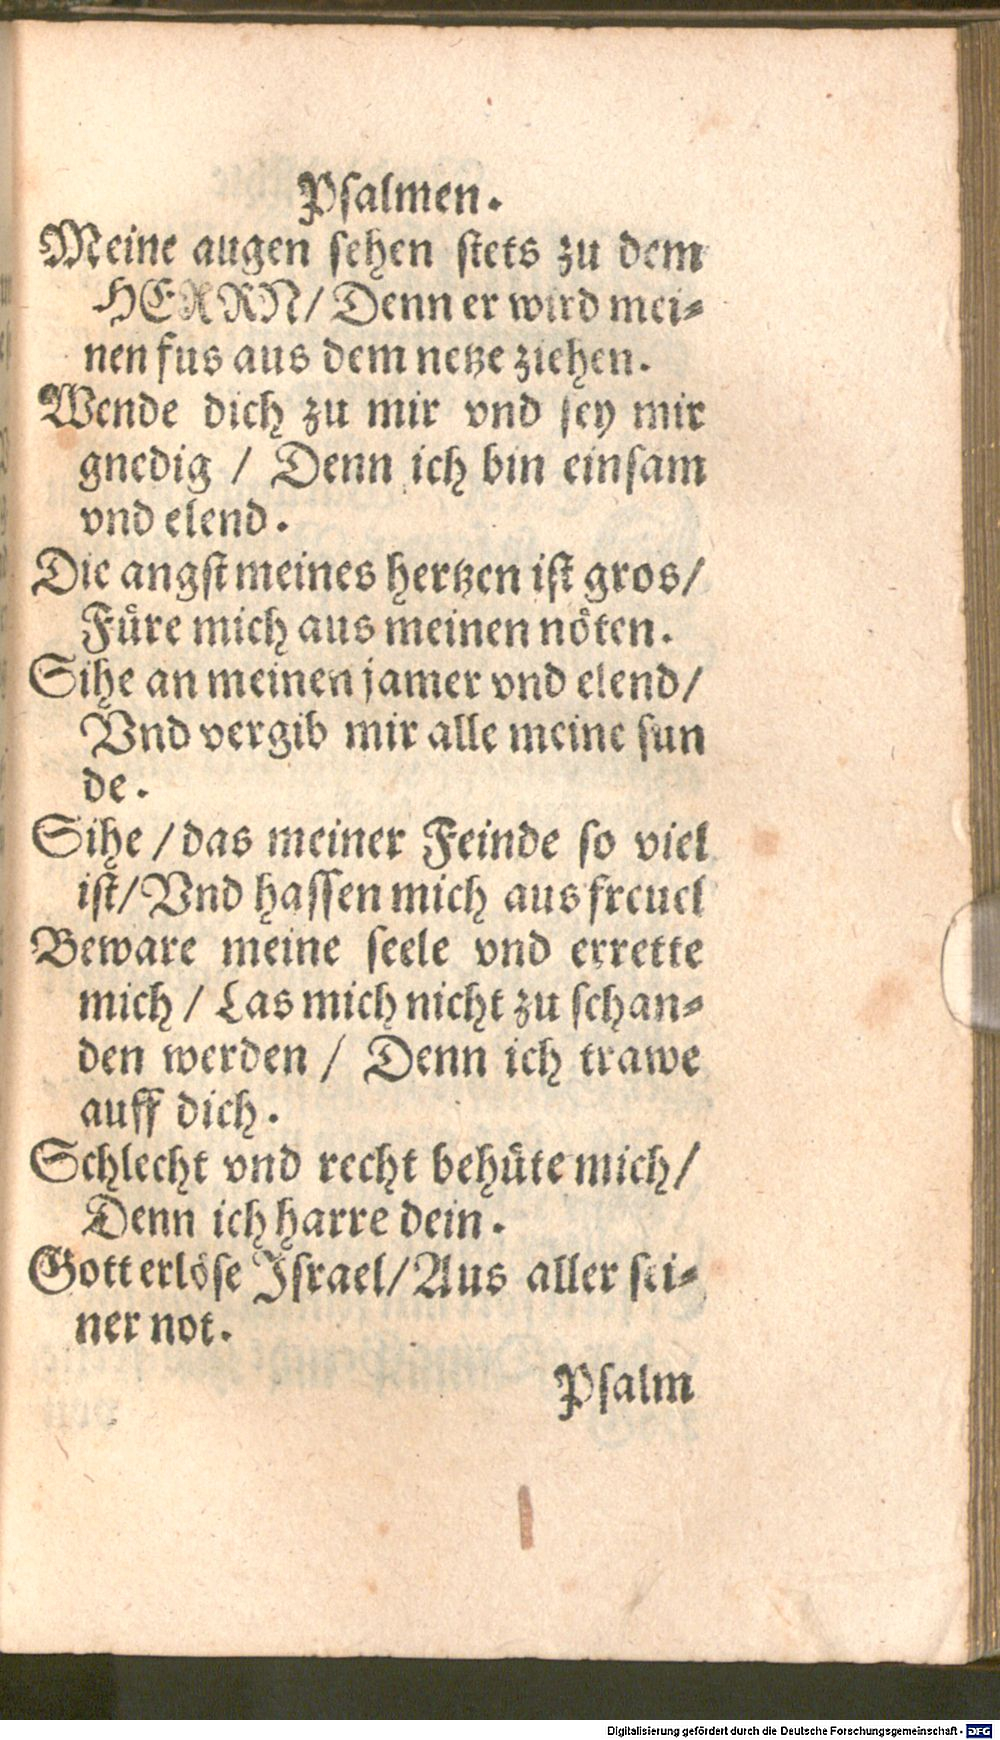 Psalmen.
Meine augen sehen stets zu dem
HERRN/ Denn er wird mei-
nen fus aus dem netze ziehen.
Wende dich zu mir vnd sey mir
gnedig / Denn ich bin einsam
vnd elend.
Die angst meines hertzen ist gros/
Füre mich aus meinen nöten.
Sihe an meinen jamer vnd elend/
Vnd vergib mir alle meine sun
de.
Sihe / das meiner Feinde so viel
ist/ Vnd hassen mich aus freuel
Beware meine seele vnd errette
mich / Las mich nicht zu schan-
den werden / Denn ich trawe
auff dich.
Schlecht vnd recht behüte mich/
Denn ich harre dein.
Gott erlöse Israel/ Aus aller sei-
ner not.
Psalm
Digitalisierung gefördert durch die Deutsche Forschungsgemeinschaft - DFG